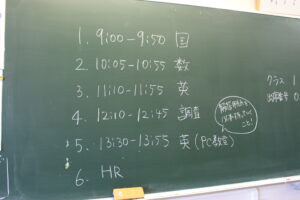 1. 9:00-9:50 国
2. 10:05-10:55 数
3. 11:10-11:55 英
4. 12:10-12:45 調査
5. 13:30-13:55 英(PC教室)
6. HR
こと!
クラス 1
出席番号 0